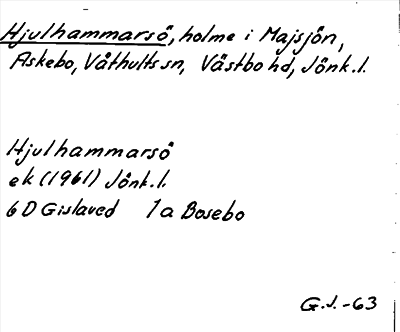 Hjulhammarsö, holme i Majsjön,
Askebo, Våthults sn, Västbo hd, Jönk.l.
Hjulhammarsö
ek (1961) Jönk.l.
6D Gislaved 1a Bosebo
G.J.-63